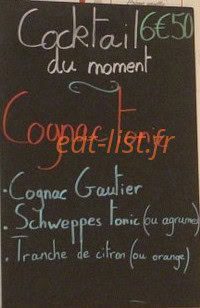 Cocktail 6€50
du moment
Cognac tonic
eat-list.fr
. Cognac Gautier
. Schweppes tonic (ou agrumes)
. Tranche de citron (ou orange)